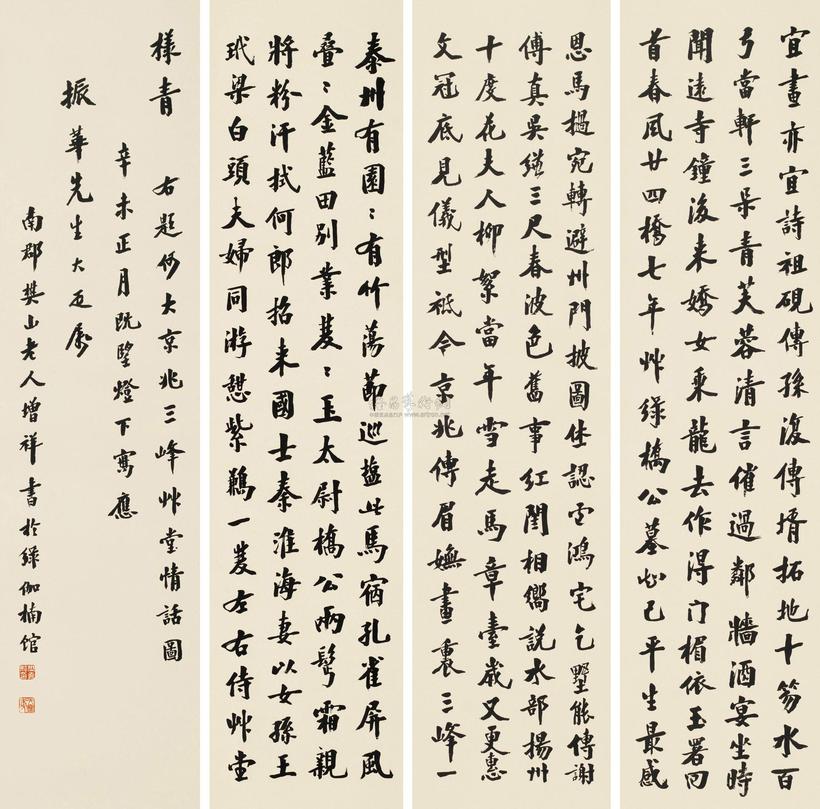 宜畫亦宜詩祖硯傳孫復傳壻拓地十笏水百
弓當軒三朵青芙蓉清言催過鄰牆酒宴坐時
聞遠寺鐘後來嬌女乘龍去作得門楣依玉署回
首春風廿四橋七年艸綠橋公墓知己平生最感
恩馬撾宛轉避州門披圖坐認雪鴻宅乞墅能傳謝
傅真吳綾三尺春波色舊事紅閨相嚮說水部揚州
十度花夫人柳絮當年雪走馬章臺歲又更惠
文冠底見儀型祗今京兆傳眉嫵畫裏三峰一
泰州有園〻有竹蕩節巡鹽此馬宿孔雀屏風
疊〻金藍田別業雙〻玉太尉橋公兩鬢霜親
將粉汗拭何郎招來國士秦淮海妻以女孫王
玳梁白頭夫婦同游憩紫鷴一雙左右侍艸堂
樣青 右題何大京兆三峰艸堂情話圖
辛未正月既望燈下寫應
振華先生大疋屬
南郡樊山老人增祥書於綠伽楠館